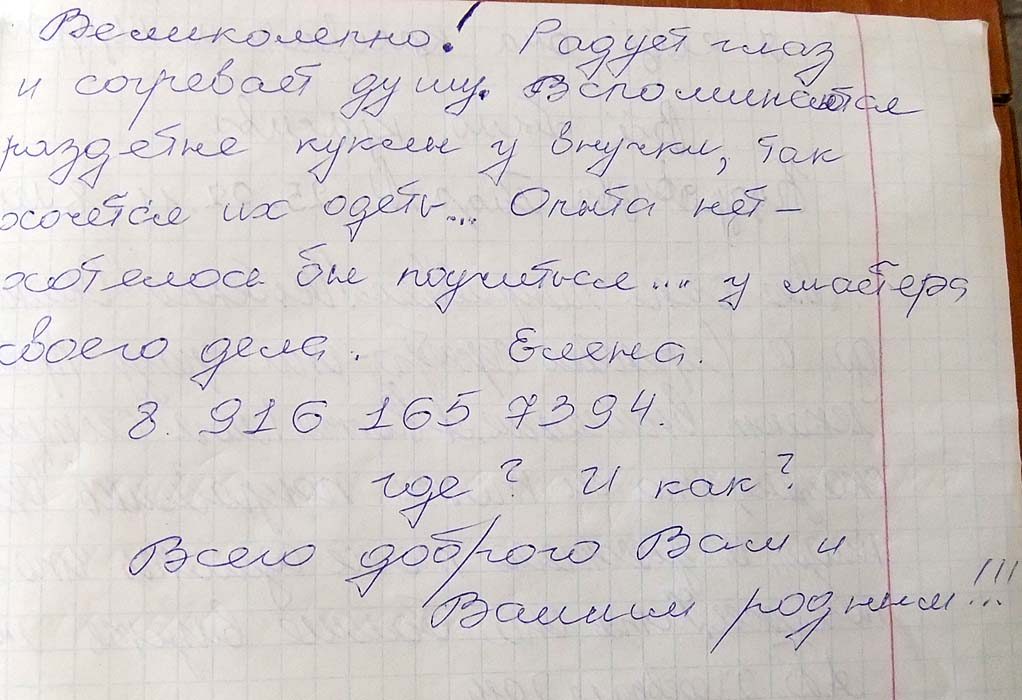 Великолепно! Радует глаз
и согревает душу. Вспоминаются
раздетые куклы у внучки, так
хочется их одеть... Опыта нет –
хотелось бы поучиться... у мастера
своего дела. Елена.
8. 916 165 7394.
где? И как?
Всего доброго Вам и
Вашим родным!!!